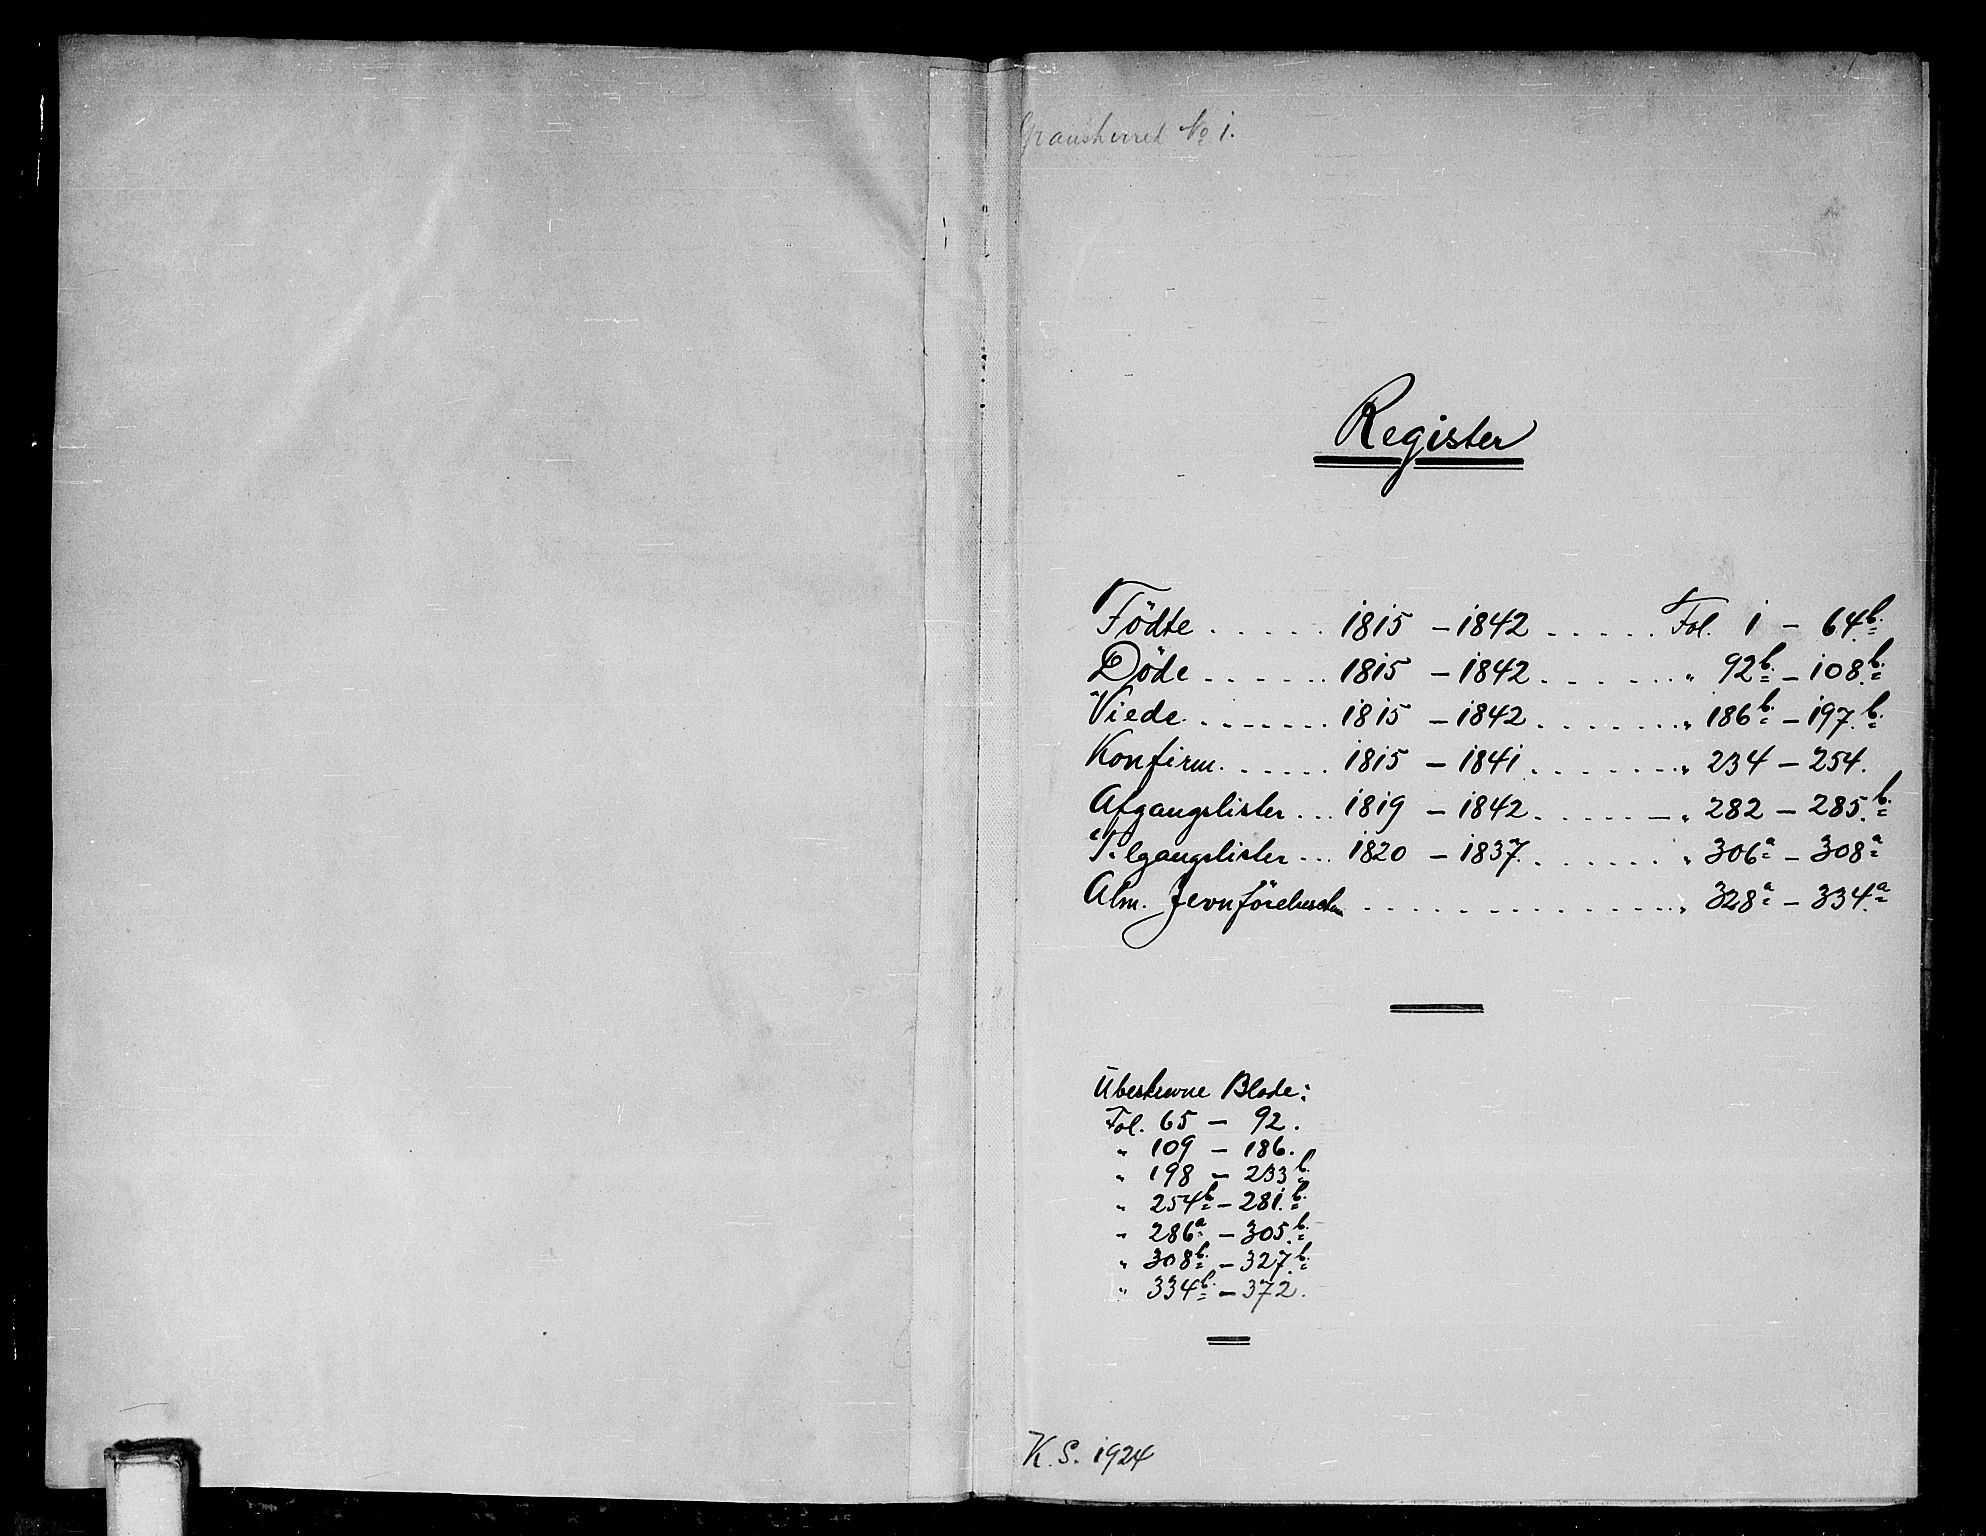 Gransherred No 1.
Register
Födte . . . . . 1815 – 1842 . . . . . Fol. 1 – 64b.
Döde . . . . . . 1815 – 1842 . . . . . . „ 92b. – 108b.
Viede . . . . . . 1815 – 1842 . . . . . . „ 186b. – 197b.
Konfirm. . . . . . 1815 – 1841 . . . . . . „ 234 – 254.
Afgangslister . . . 1819 – 1842 . . . . . . „ 282 – 285b.
Tilgangslister . . . 1820 – 1837 . . . . . . „ 306a – 308a
Alm. Jevnförelses . . . . . . . . . . . . . . „ 328a – 334a
Ubeskrevne Blade:
Fol. 65 – 92.
„ 109 – 186.
„ 198 – 233b.
„ 254b – 281b.
„ 286a – 305b.
„ 308b. – 327b.
„ 334b. – 372.
K. S. 1924